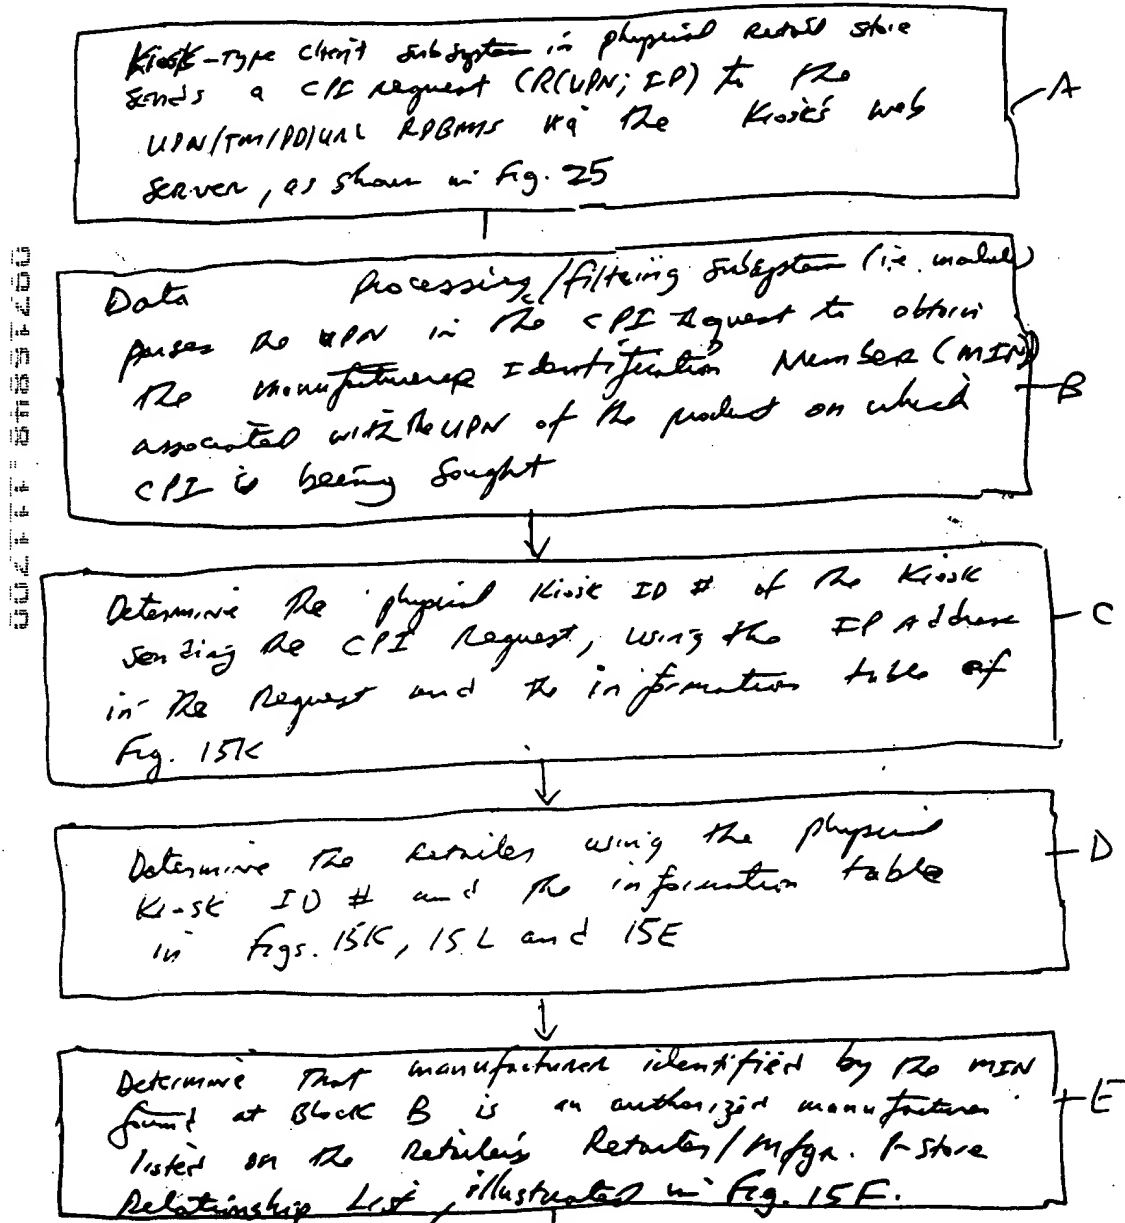 Kiosk-Type Client Subsystem in physical Retail store
sends a CPI request (R(UPN; IP) to the
UPN/TM/PD/URL RDBMS via the Kiosk's web
Server, as shown in Fig. 25
A
Data Processing/filtering Subsystem (i.e. module)
parses the UPN in the CPI Request to obtain
the manufacturer Identification Number (MIN)
associated with the UPN of the product on which
CPI is being sought
B
Determine the physical Kiosk ID # of the Kiosk
sending the CPI Request, using the IP Address
in the Request and the information table of
Fig. 15K
C
Determine the Retailer using the physical
Kiosk ID # and the information table
in Figs. 15K, 15L and 15E
D
Determine that manufacturer identified by the MIN
found at Block B is an authorized manufacturer
listed on the Retailer's Retailer/Mfgr. P-Store
Relationship List, illustrated in Fig. 15F.
E